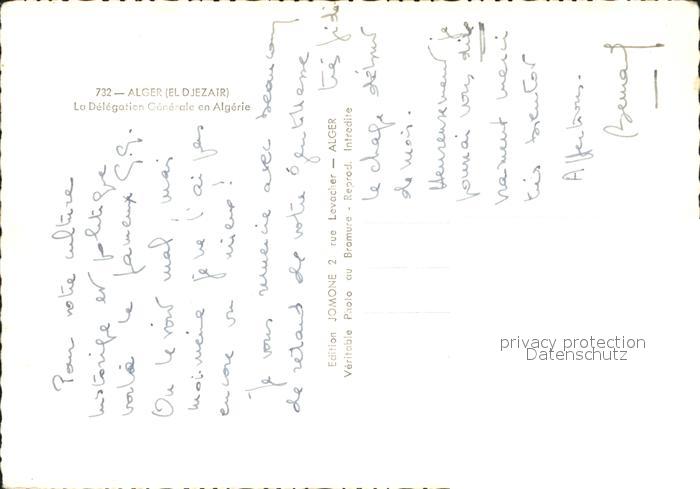 732 — ALGER (EL DJEZAIR)
La Délégation Générale en Algérie
Pour votre culture
historique et politique
voilà le fameux G.G.
On le voit mal mais
moi-même je ne l'ai pas
encore vu mieux !
Je vous remercie avec beaucoup
de retard de votre gentillesse
Edition JOMONE 2 rue Levacher — ALGER
Véritable Photo au Bromure - Reprod. Interdite
très
le début
de mois.
Heureusement je
pourrai vous dire
vraiment merci
très bientôt
Affections.
Bernard
privacy protection
Datenschutz